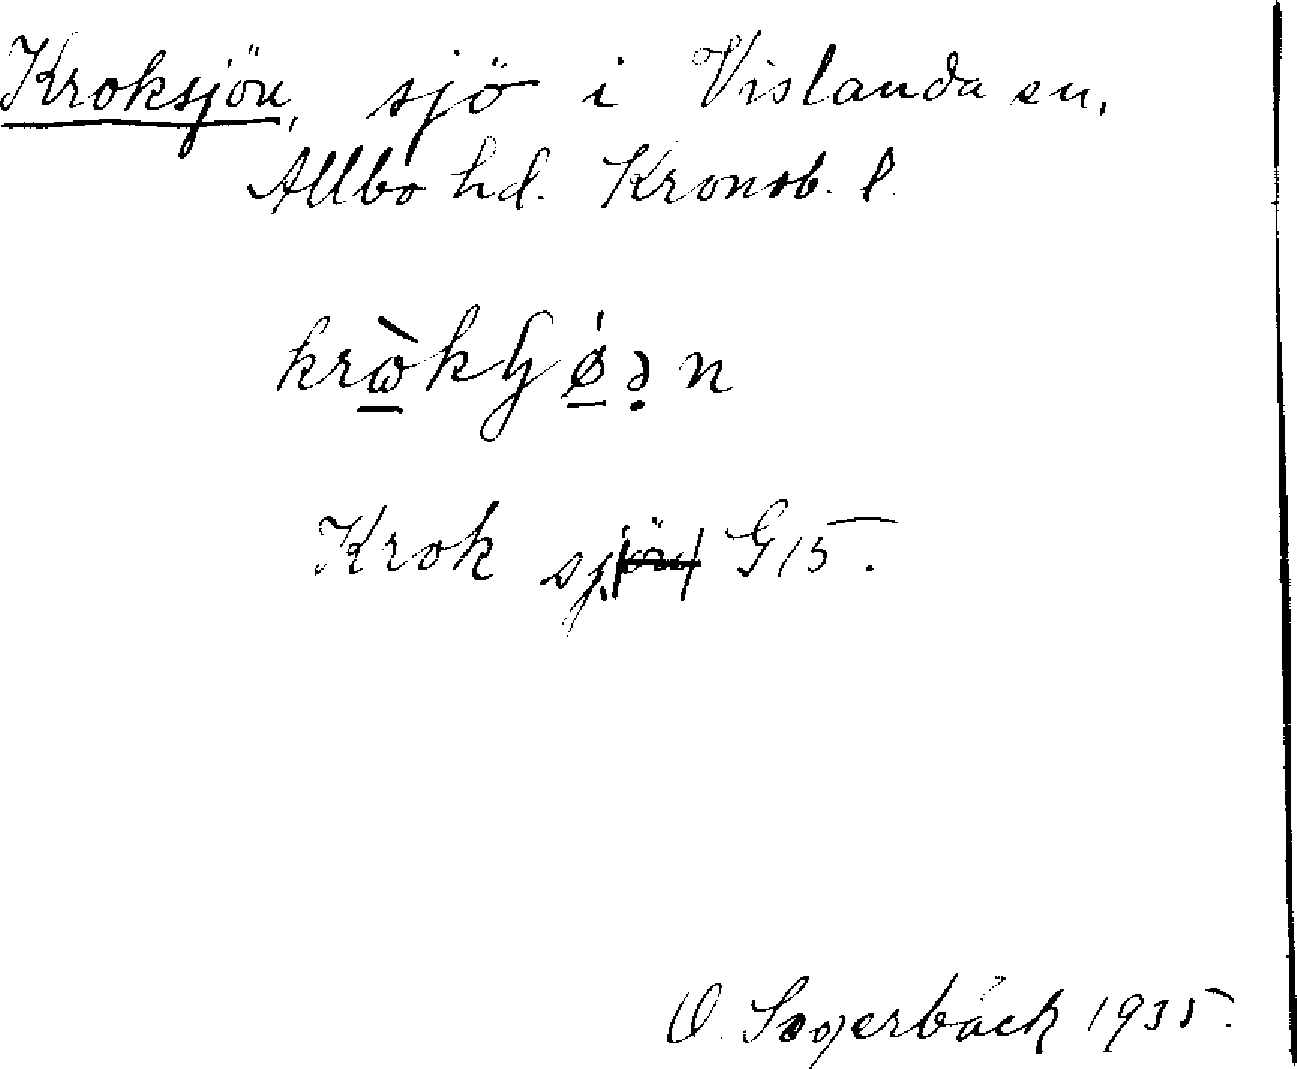 Kroksjön, sjö i Vislanda sn,
Allbo hd. Kronob. l.
krὼ̲kʃǿ̲ə̣n
Krok sj. G 15.
O. Sagerbäck 1935.